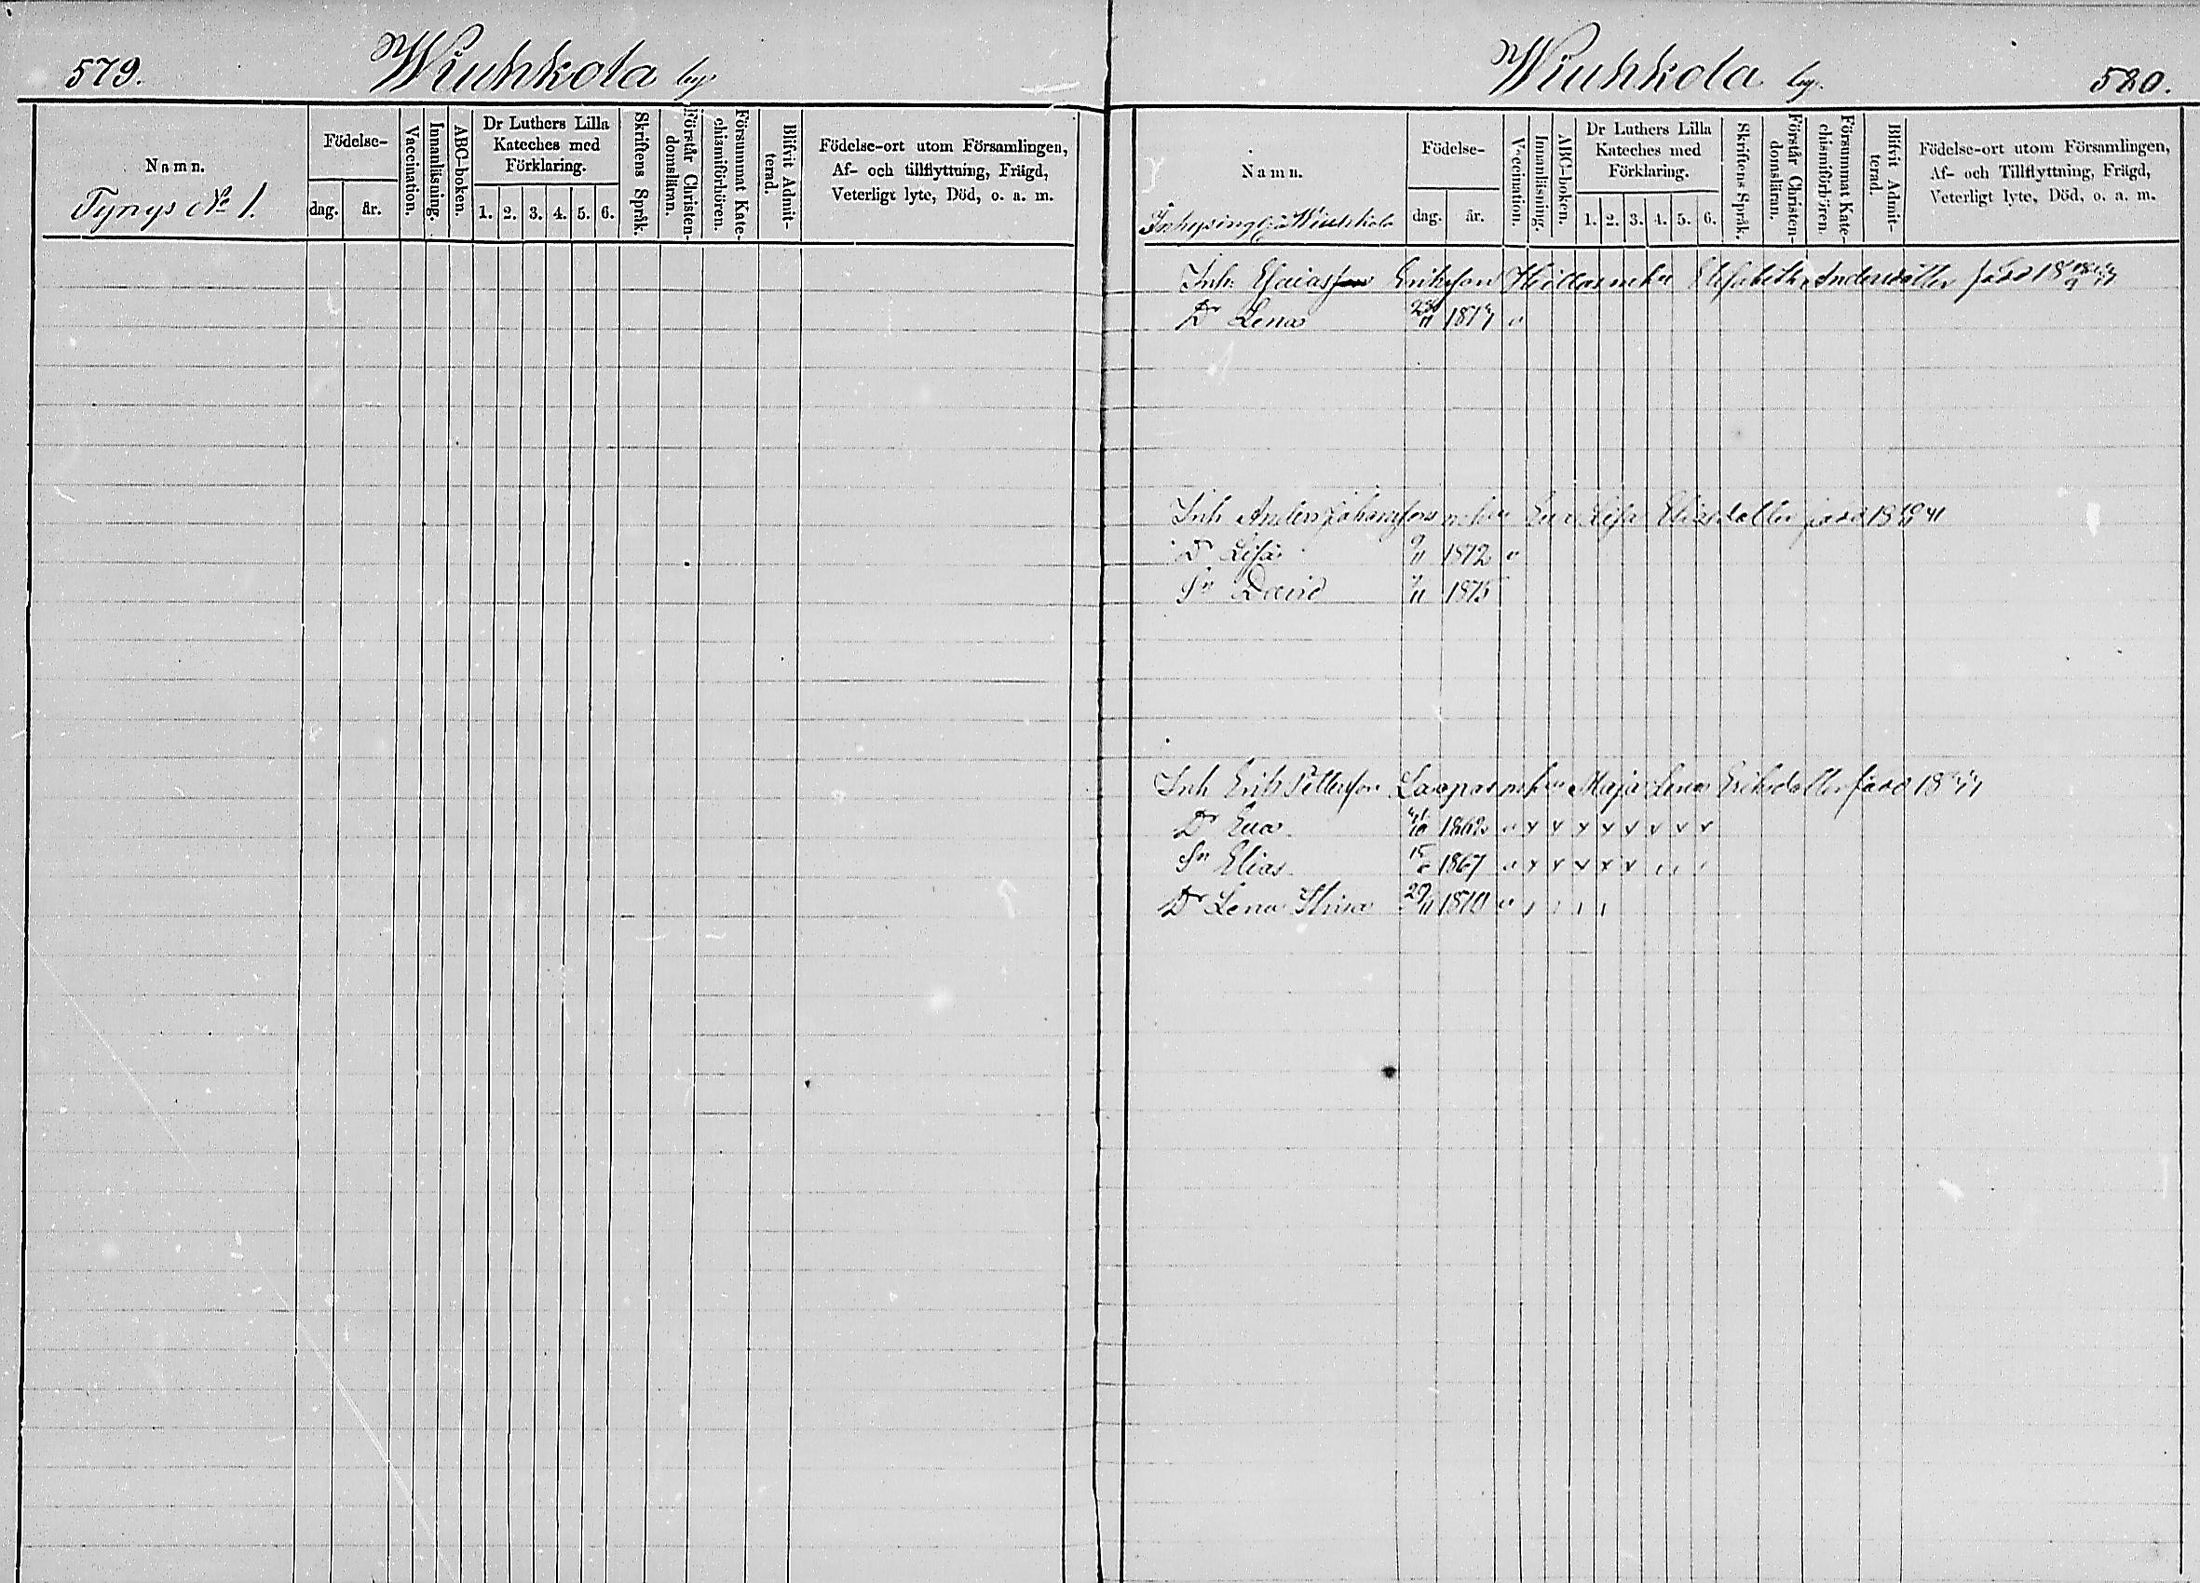 579. Wiuhkola by.
Namn.
Tynys No 1.
Födelse-
dag. år.
Vaccination.
Innanläsning.
ABC-boken.
Dr Luthers Lilla
Kateches med
Förklaring.
1. 2. 3. 4. 5. 6.
Skriftens Språk.
Förstår Christen-
domsläran.
Försummat Kate-
chismiförhören.
Blifvit Admit-
terad.
Födelse-ort utom Församlingen,
Af- och tillflyttning, Frägd,
Veterligt lyte, Död, o. a. m.
Wiuhkola by. 580.
Namn.
Wiuhkola
Födelse-
dag. år.
Vaccination.
Innanläsning.
ABC-boken.
Dr Luthers Lilla
Kateches med
Förklaring.
1. 2. 3. 4. 5. 6.
Skriftens Språk.
Förstår Christen-
domsläran.
Försummat Kate-
chismiförhören.
Blifvit Admit-
terad.
Födelse-ort utom Församlingen,
Af- och Tillflyttning, Frägd,
Veterligt lyte, Död, o. a. m.
Inh. Esaias Eriksson Elisabeth Andersdotter född 18
Dr Lena v
Inh Anders Johansson Eva Lisa Eliasdotter född 18
Dr Lisa 9/11 1872 v
Sn David 1875
Inh Erik Pettersson Maja Lena Eriksdotter född 18
Dr Eva 1862 v x x x x x x x x
Sn Elias 1867 v x x x x x
Dr Lena Stina 29/11 1870 v